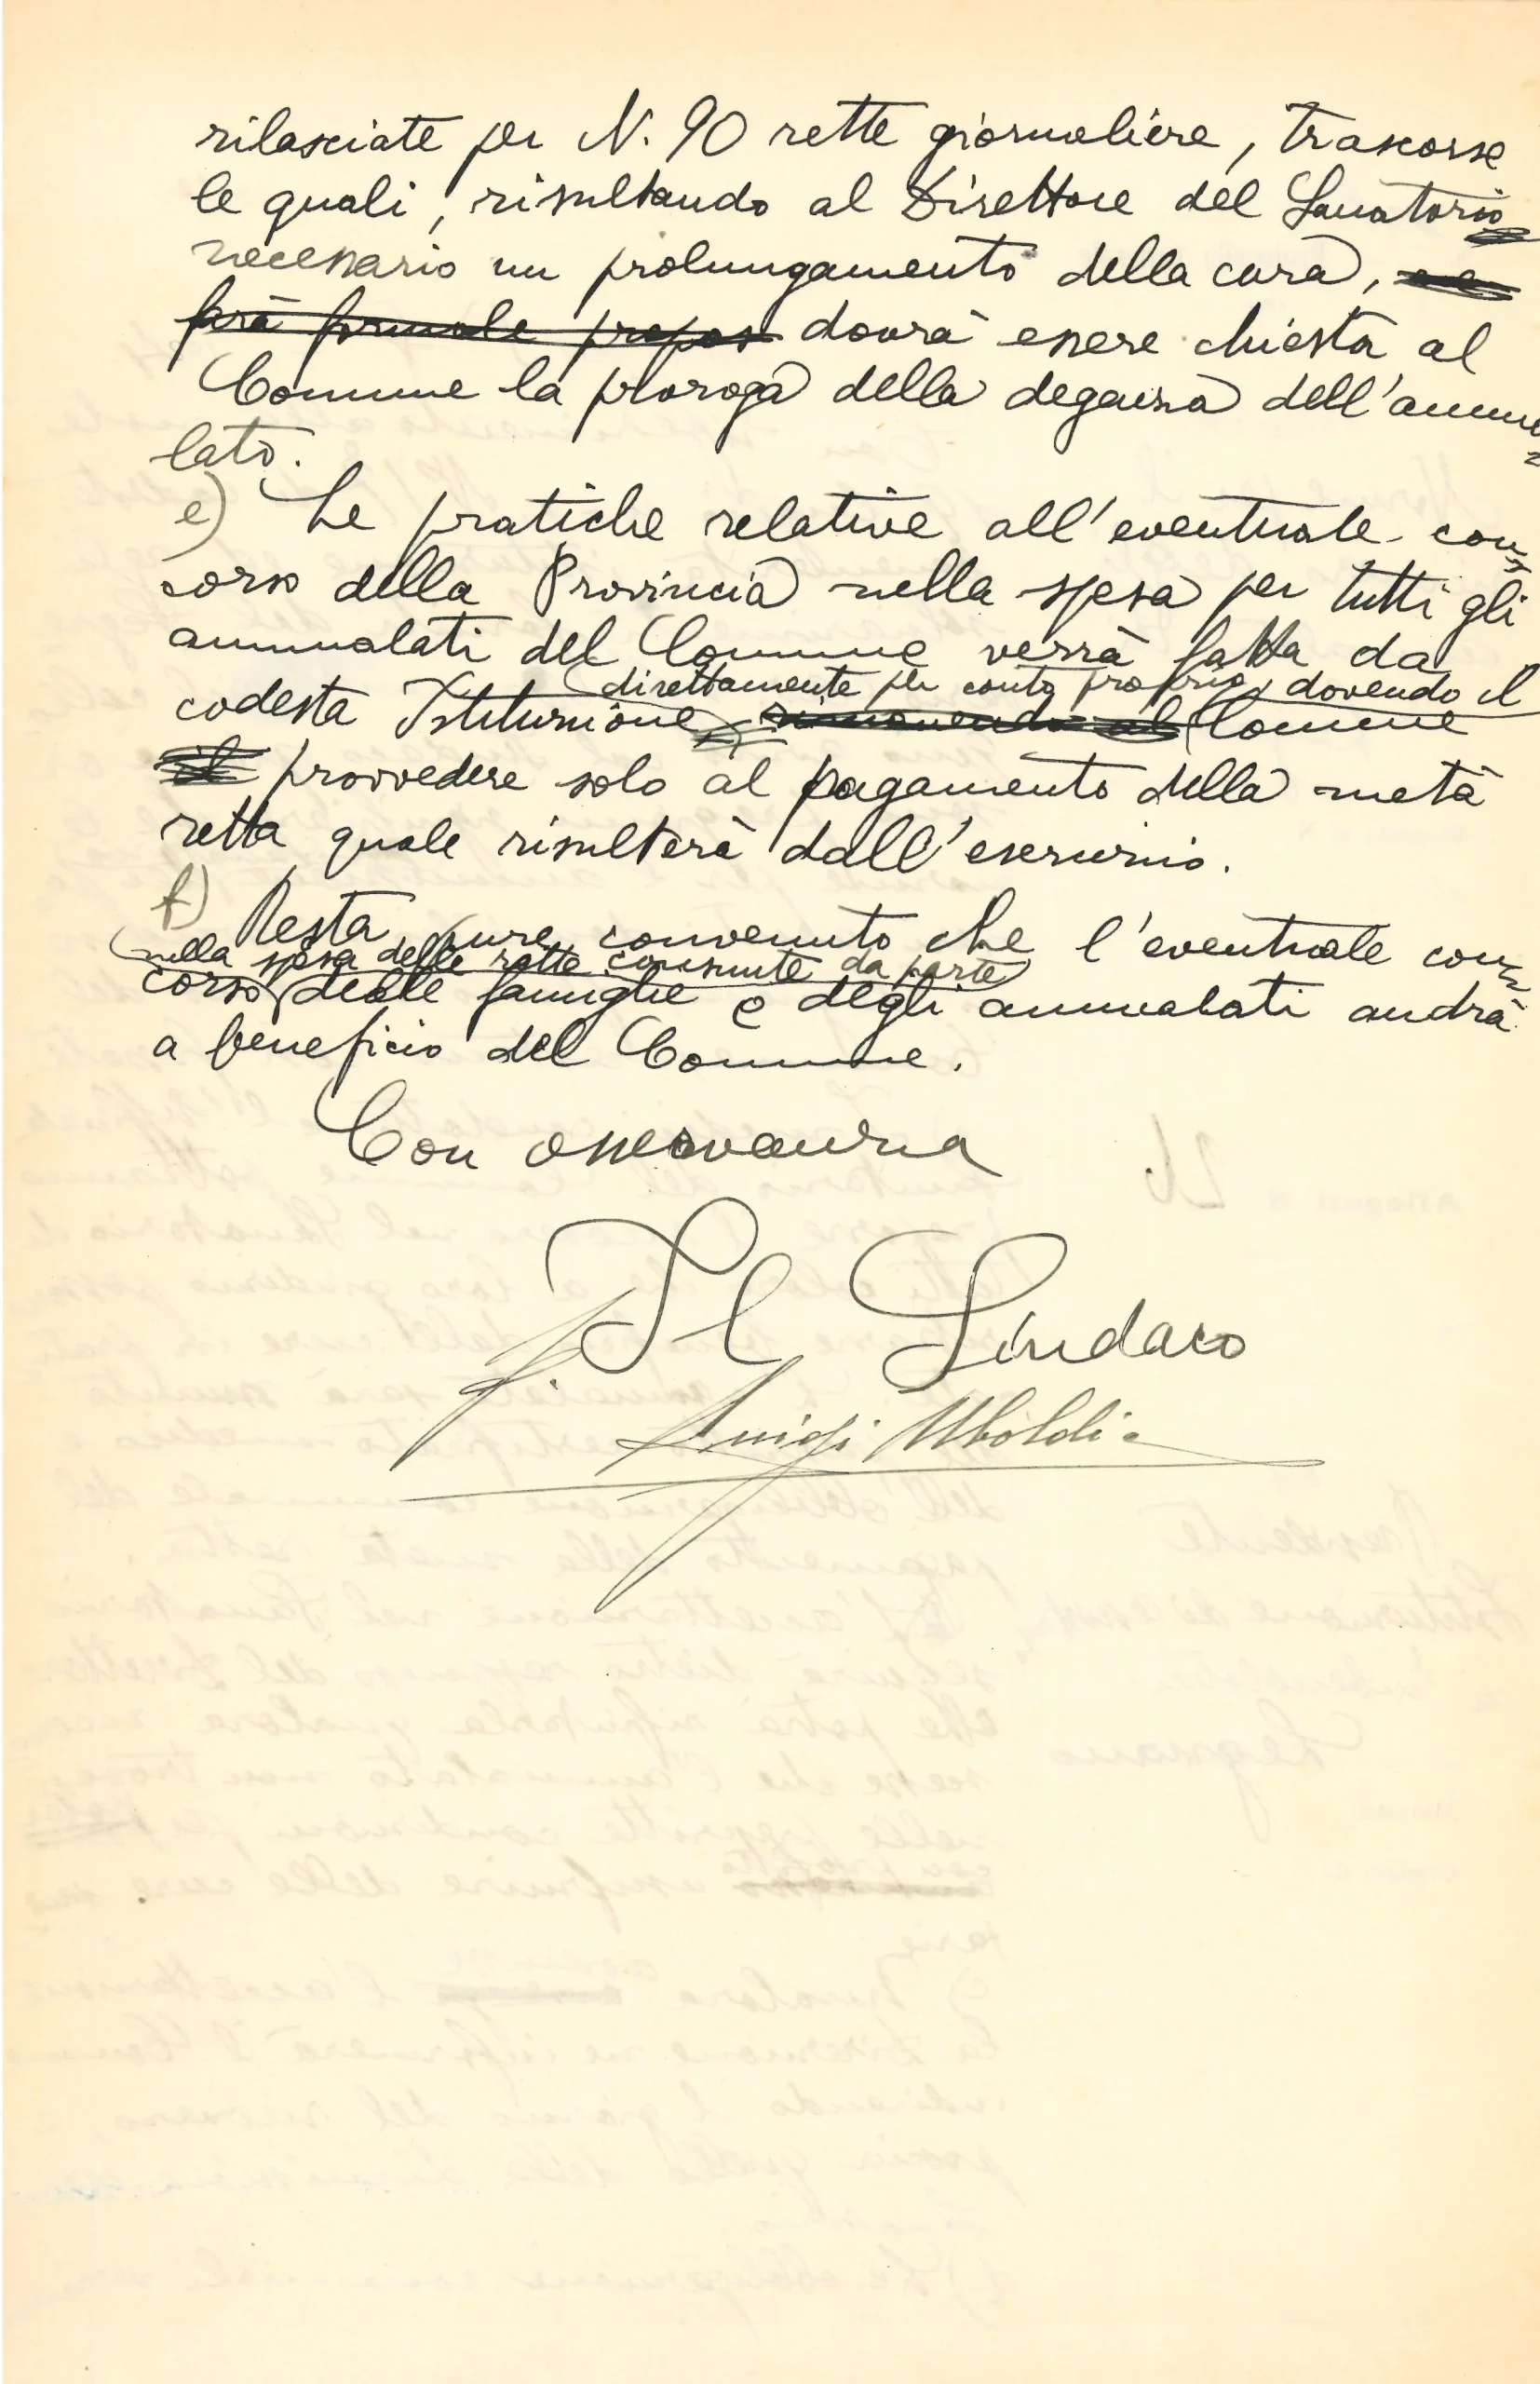 rilasciate per N. 90 rette giornaliere, trascorse
le quali, risultando al Direttore del Sanatorio
necessario un prolungamento della cura,
farà formale propos dovrà essere chiesta al
Comune la proroga della degenza dell'amma=
lato.
e) Le pratiche relative all'eventuale con=
corso della Provincia nella spesa per tutti gli
ammalati del Comune verrà fatta da
direttamente per conto proprio, dovendo il
codesta Istituzione rimanendo al Comune
il provvedere solo al pagamento della metà
retta quale risulterà dall'esercizio.
f) Resta pure convenuto che l'eventuale con=
nella spesa delle rette consunte da parte
corso delle famiglie e degli ammalati andrà
a beneficio del Comune.
Con osservanza
Il Sindaco
f. Luigi Uboldi